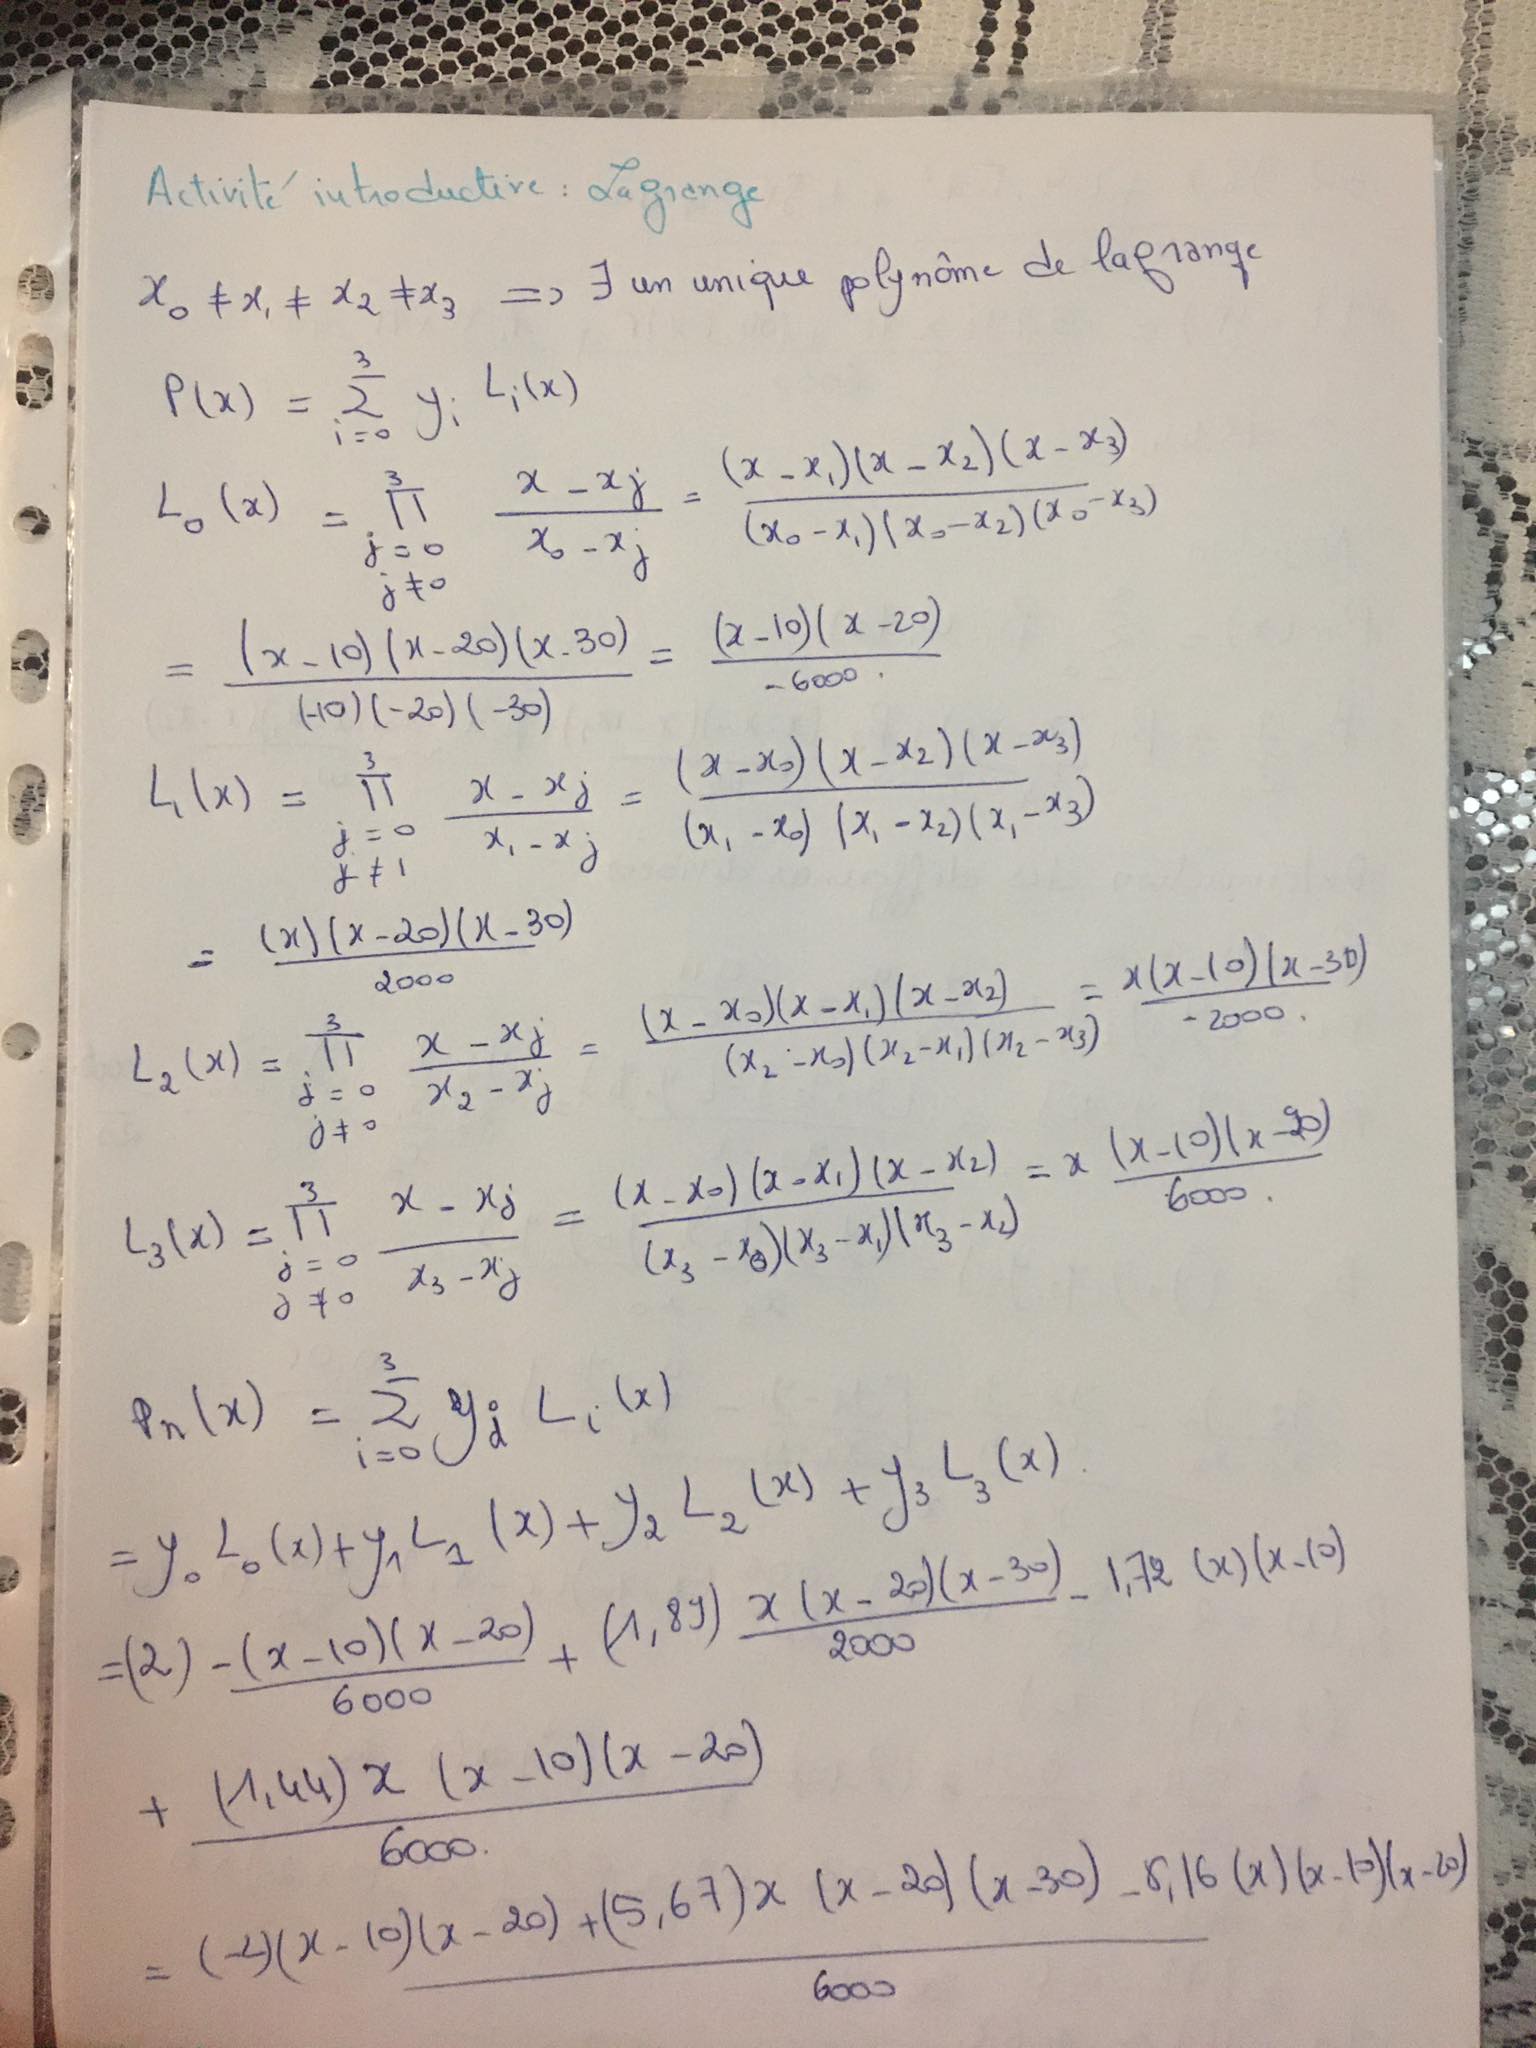 Activité introductive : Lagrange
x₀ ≠ x₁ ≠ x₂ ≠ x₃ => ∃ un unique polynôme de lagrange
P(x) = Σ_{i=0}^{3} y_i L_i(x)
L₀(x) = Π_{j=0, j≠0}^{3} (x - x_j)/(x₀ - x_j) = (x - x₁)(x - x₂)(x - x₃) / (x₀ - x₁)(x₀ - x₂)(x₀ - x₃)
= (x - 10)(x - 20)(x - 30) / (-10)(-20)(-30) = (x - 10)(x - 20) / -6000.
L₁(x) = Π_{j=0, j≠1}^{3} (x - x_j)/(x₁ - x_j) = (x - x₀)(x - x₂)(x - x₃) / (x₁ - x₀)(x₁ - x₂)(x₁ - x₃)
= (x)(x - 20)(x - 30) / 2000
L₂(x) = Π_{j=0, j≠0}^{3} (x - x_j)/(x₂ - x_j) = (x - x₀)(x - x₁)(x - x₂) / (x₂ - x₀)(x₂ - x₁)(x₂ - x₃) = x(x - 10)(x - 30) / -2000.
L₃(x) = Π_{j=0, j≠0}^{3} (x - x_j)/(x₃ - x_j) = (x - x₀)(x - x₁)(x - x₂) / (x₃ - x₀)(x₃ - x₁)(x₃ - x₂) = x (x - 10)(x - 20) / 6000.
Pn(x) = Σ_{i=0}^{3} y_i L_i(x)
= y₀ L₀(x) + y₁ L₁(x) + y₂ L₂(x) + y₃ L₃(x).
= (2) - (x - 10)(x - 20) / 6000 + (1,89) x(x - 20)(x - 30) / 2000 - 1,72 (x)(x - 10)
+ (1,44) x (x - 10)(x - 20) / 6000.
= (-2)(x - 10)(x - 20) + (5,67) x (x - 20)(x - 30) - 5,16 (x)(x - 10)(x - 20) / 6000